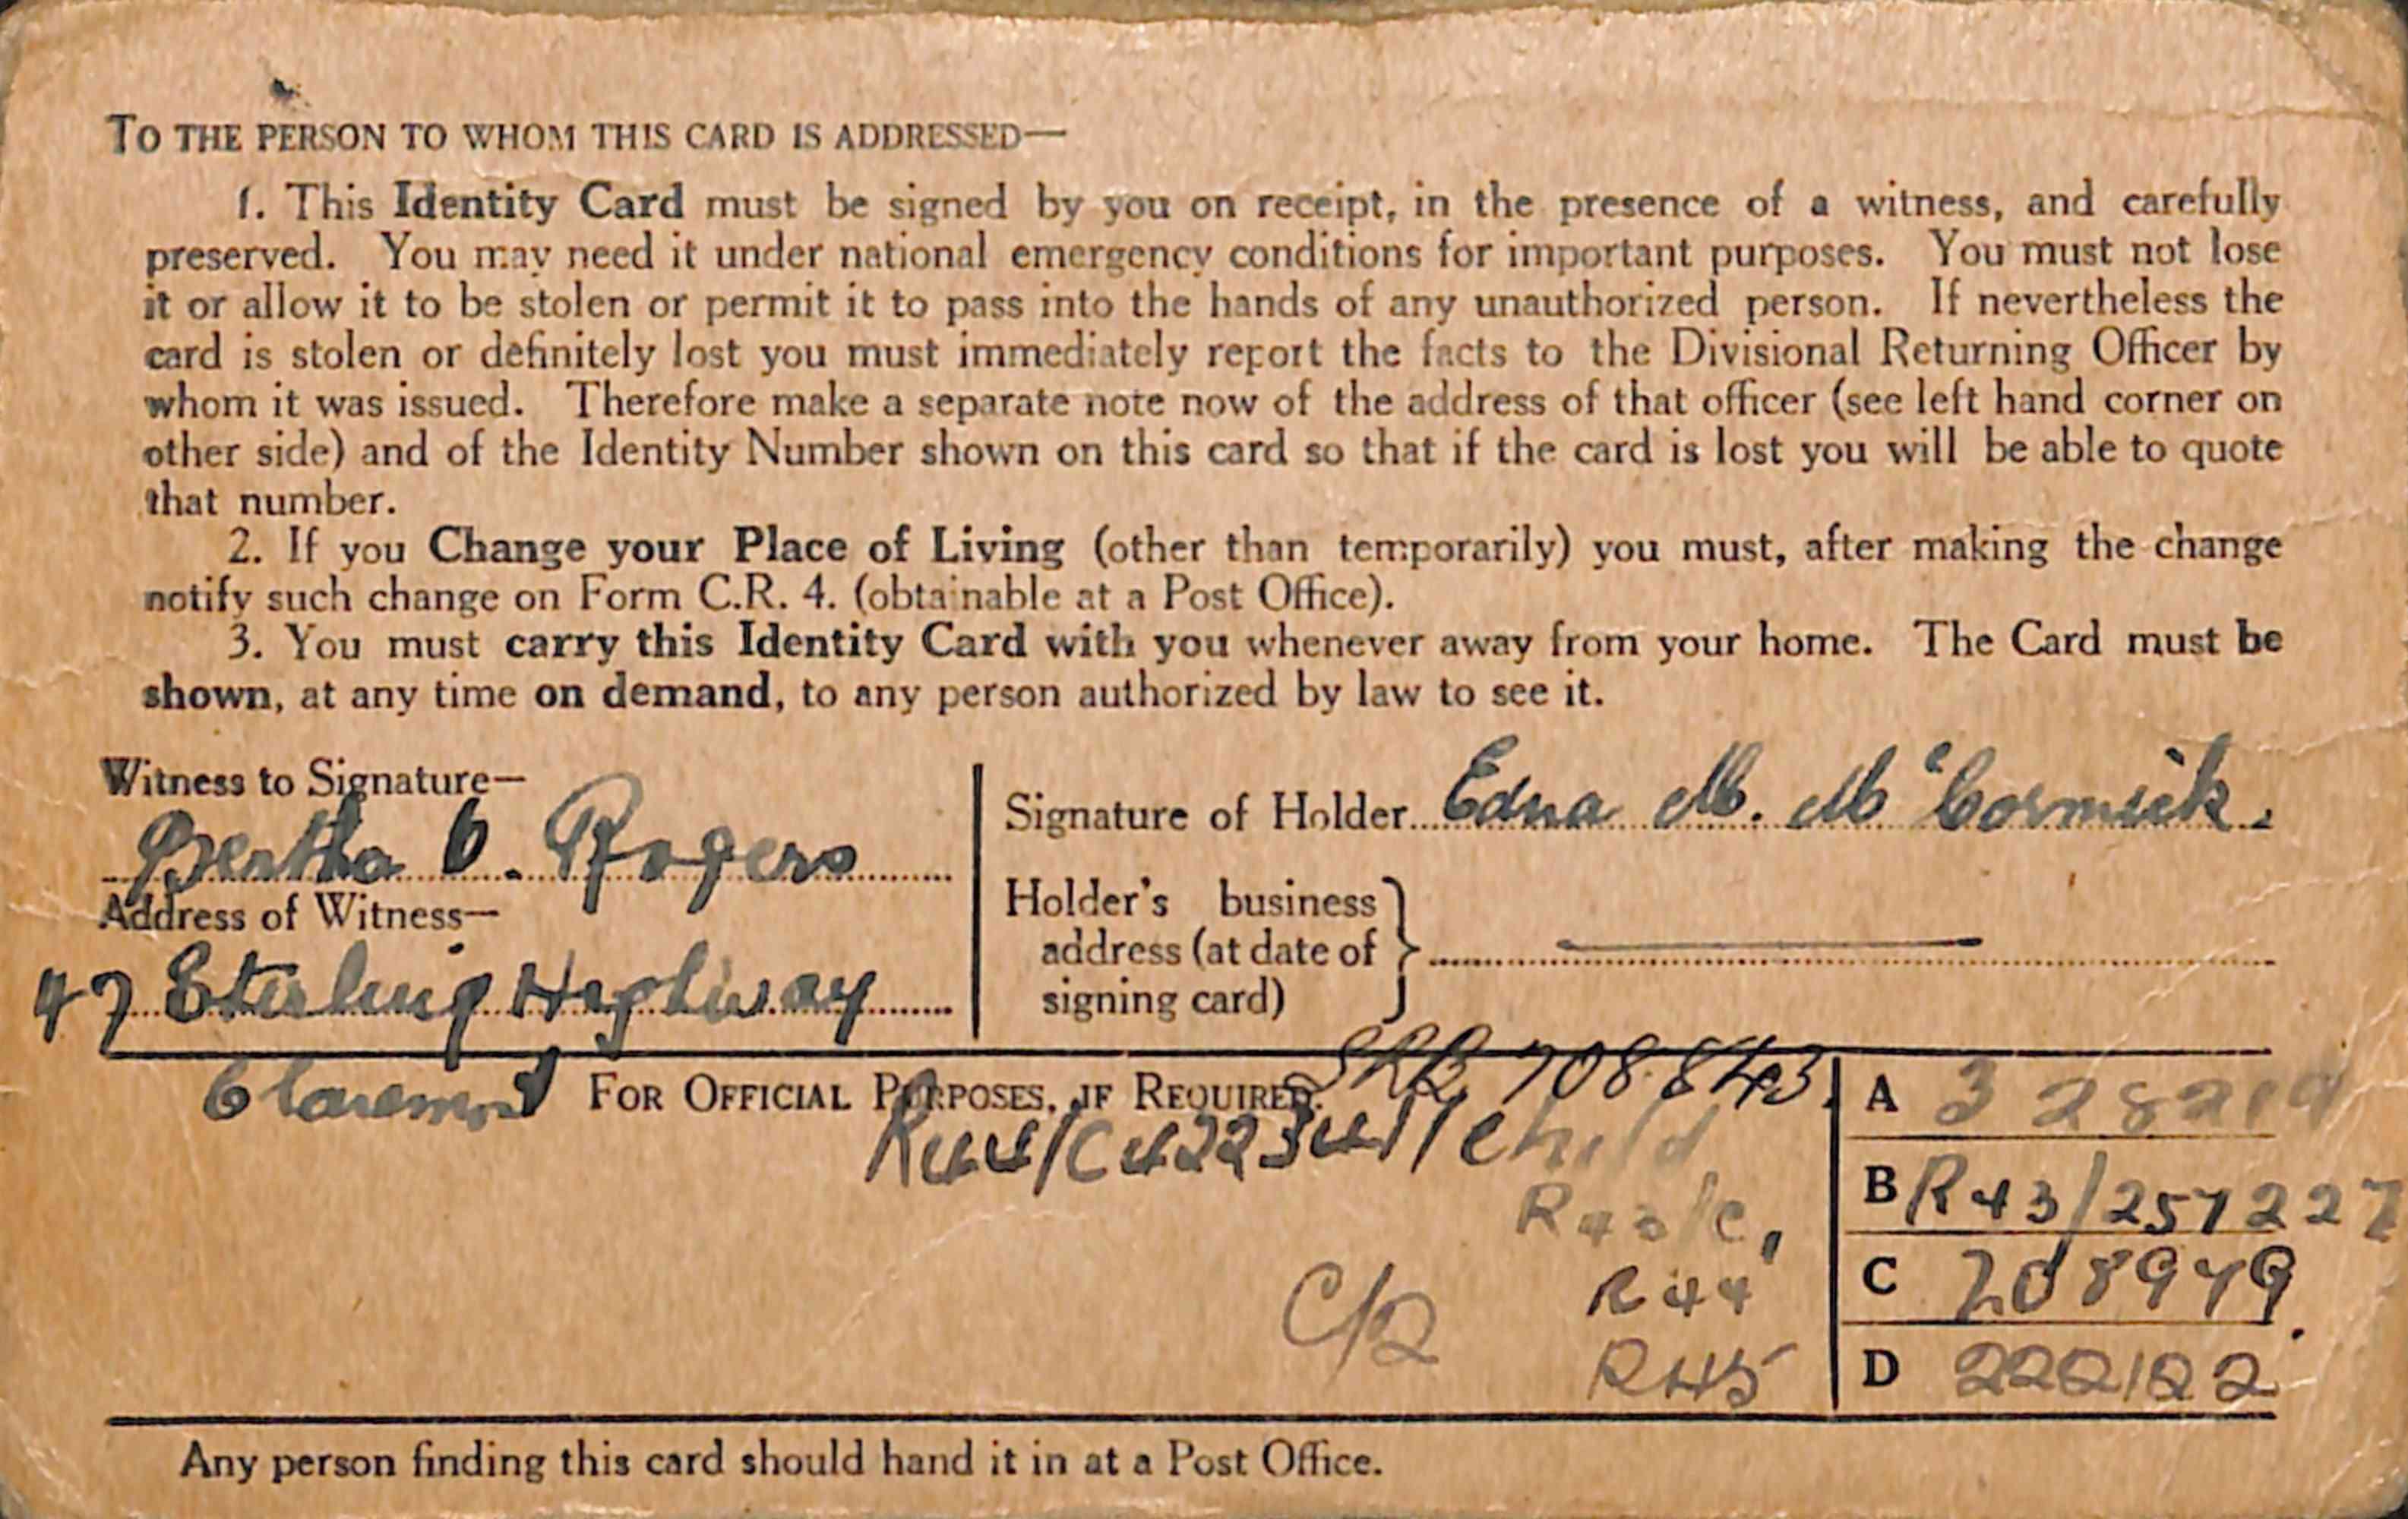 TO THE PERSON TO WHOM THIS CARD IS ADDRESSED—
1. This Identity Card must be signed by you on receipt, in the presence of a witness, and carefully
preserved. You may need it under national emergency conditions for important purposes. You must not lose
it or allow it to be stolen or permit it to pass into the hands of any unauthorized person. If nevertheless the
card is stolen or definitely lost you must immediately report the facts to the Divisional Returning Officer by
whom it was issued. Therefore make a separate note now of the address of that officer (see left hand corner on
other side) and of the Identity Number shown on this card so that if the card is lost you will be able to quote
that number.
2. If you Change your Place of Living (other than temporarily) you must, after making the change
notify such change on Form C.R. 4. (obtainable at a Post Office).
3. You must carry this Identity Card with you whenever away from your home. The Card must be
shown, at any time on demand, to any person authorized by law to see it.
Witness to Signature—
Bertha C. Rogers
Address of Witness—
47 Stirling Highway
Claremont
Signature of Holder Edna M. McCormick.
Holder's business
address (at date of
signing card)
FOR OFFICIAL PURPOSES, IF REQUIRED.
708843
Child
R44
C/2
R45
A
B R43/257227
C 208979
D 222122
Any person finding this card should hand it in at a Post Office.